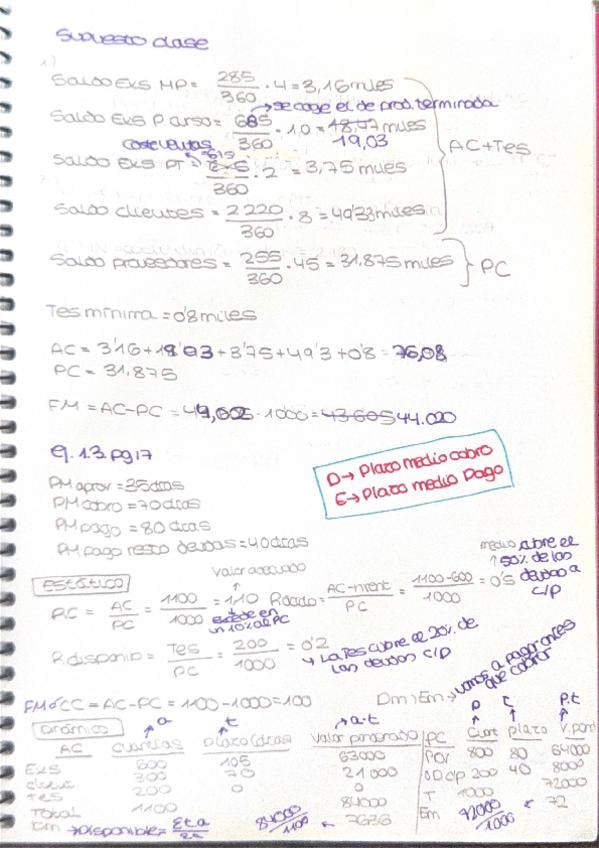 Supuesto clase
1)
Saldo Exs MP = 285/360 · 4 = 3,16 miles
→ se coge el de prod. terminada
Saldo Exs P curso = 685/360 · 10 = 18,47 miles 19,03
coste ventas
Saldo Exs PT = /360 · 2 = 3,75 miles
AC + Tes
Saldo clientes = 2220/360 · 8 = 49'33 miles
Saldo proveedores = 255/360 · 45 = 31.875 miles } PC
Tes mínima = 0'8 miles
AC = 3'16 + 19'03 + 3'75 + 49'3 + 0'8 = 76,08
PC = 31.875
FM = AC - PC = · 1000 = 43605 44.020
Ej. 1.3. pg 17
D → Plazo medio cobro
E → Plazo medio Pago
PM aprov = 35 días
PM cobro = 70 días
PM pago = 80 días
PM pago resto deudas = 40 días
Estático
valor adecuado
medio cubre el 50% de las deudas a c/p
RC = AC/PC = 1100/1000 = 1'10 R ácido = AC-nrent/PC = 1100-600/1000 = 0'5
excede en un 10% al PC
R disponib = Tes/PC = 200/1000 = 0'2
→ La Tes cubre el 20% de las deudas c/p
FM ó CC = AC - PC = 1100 - 1000 = 100
Dm > Em → vamos a pagar antes que cobrar
Dinámico a t → a·t p t P.t
AC cuantías plazo (días) valor ponderado PC Cuant plazo V. pond
Exs 600 105 63000 Pov 800 80 64000
client 300 70 21000 OD c/p 200 40 8000
Tes 200 0 0 T 1000 72000
Total 1100 84000 Em 72000/1000 = 72
Dm → Disponible = Σta/Σa 84000/1100 = 76'36